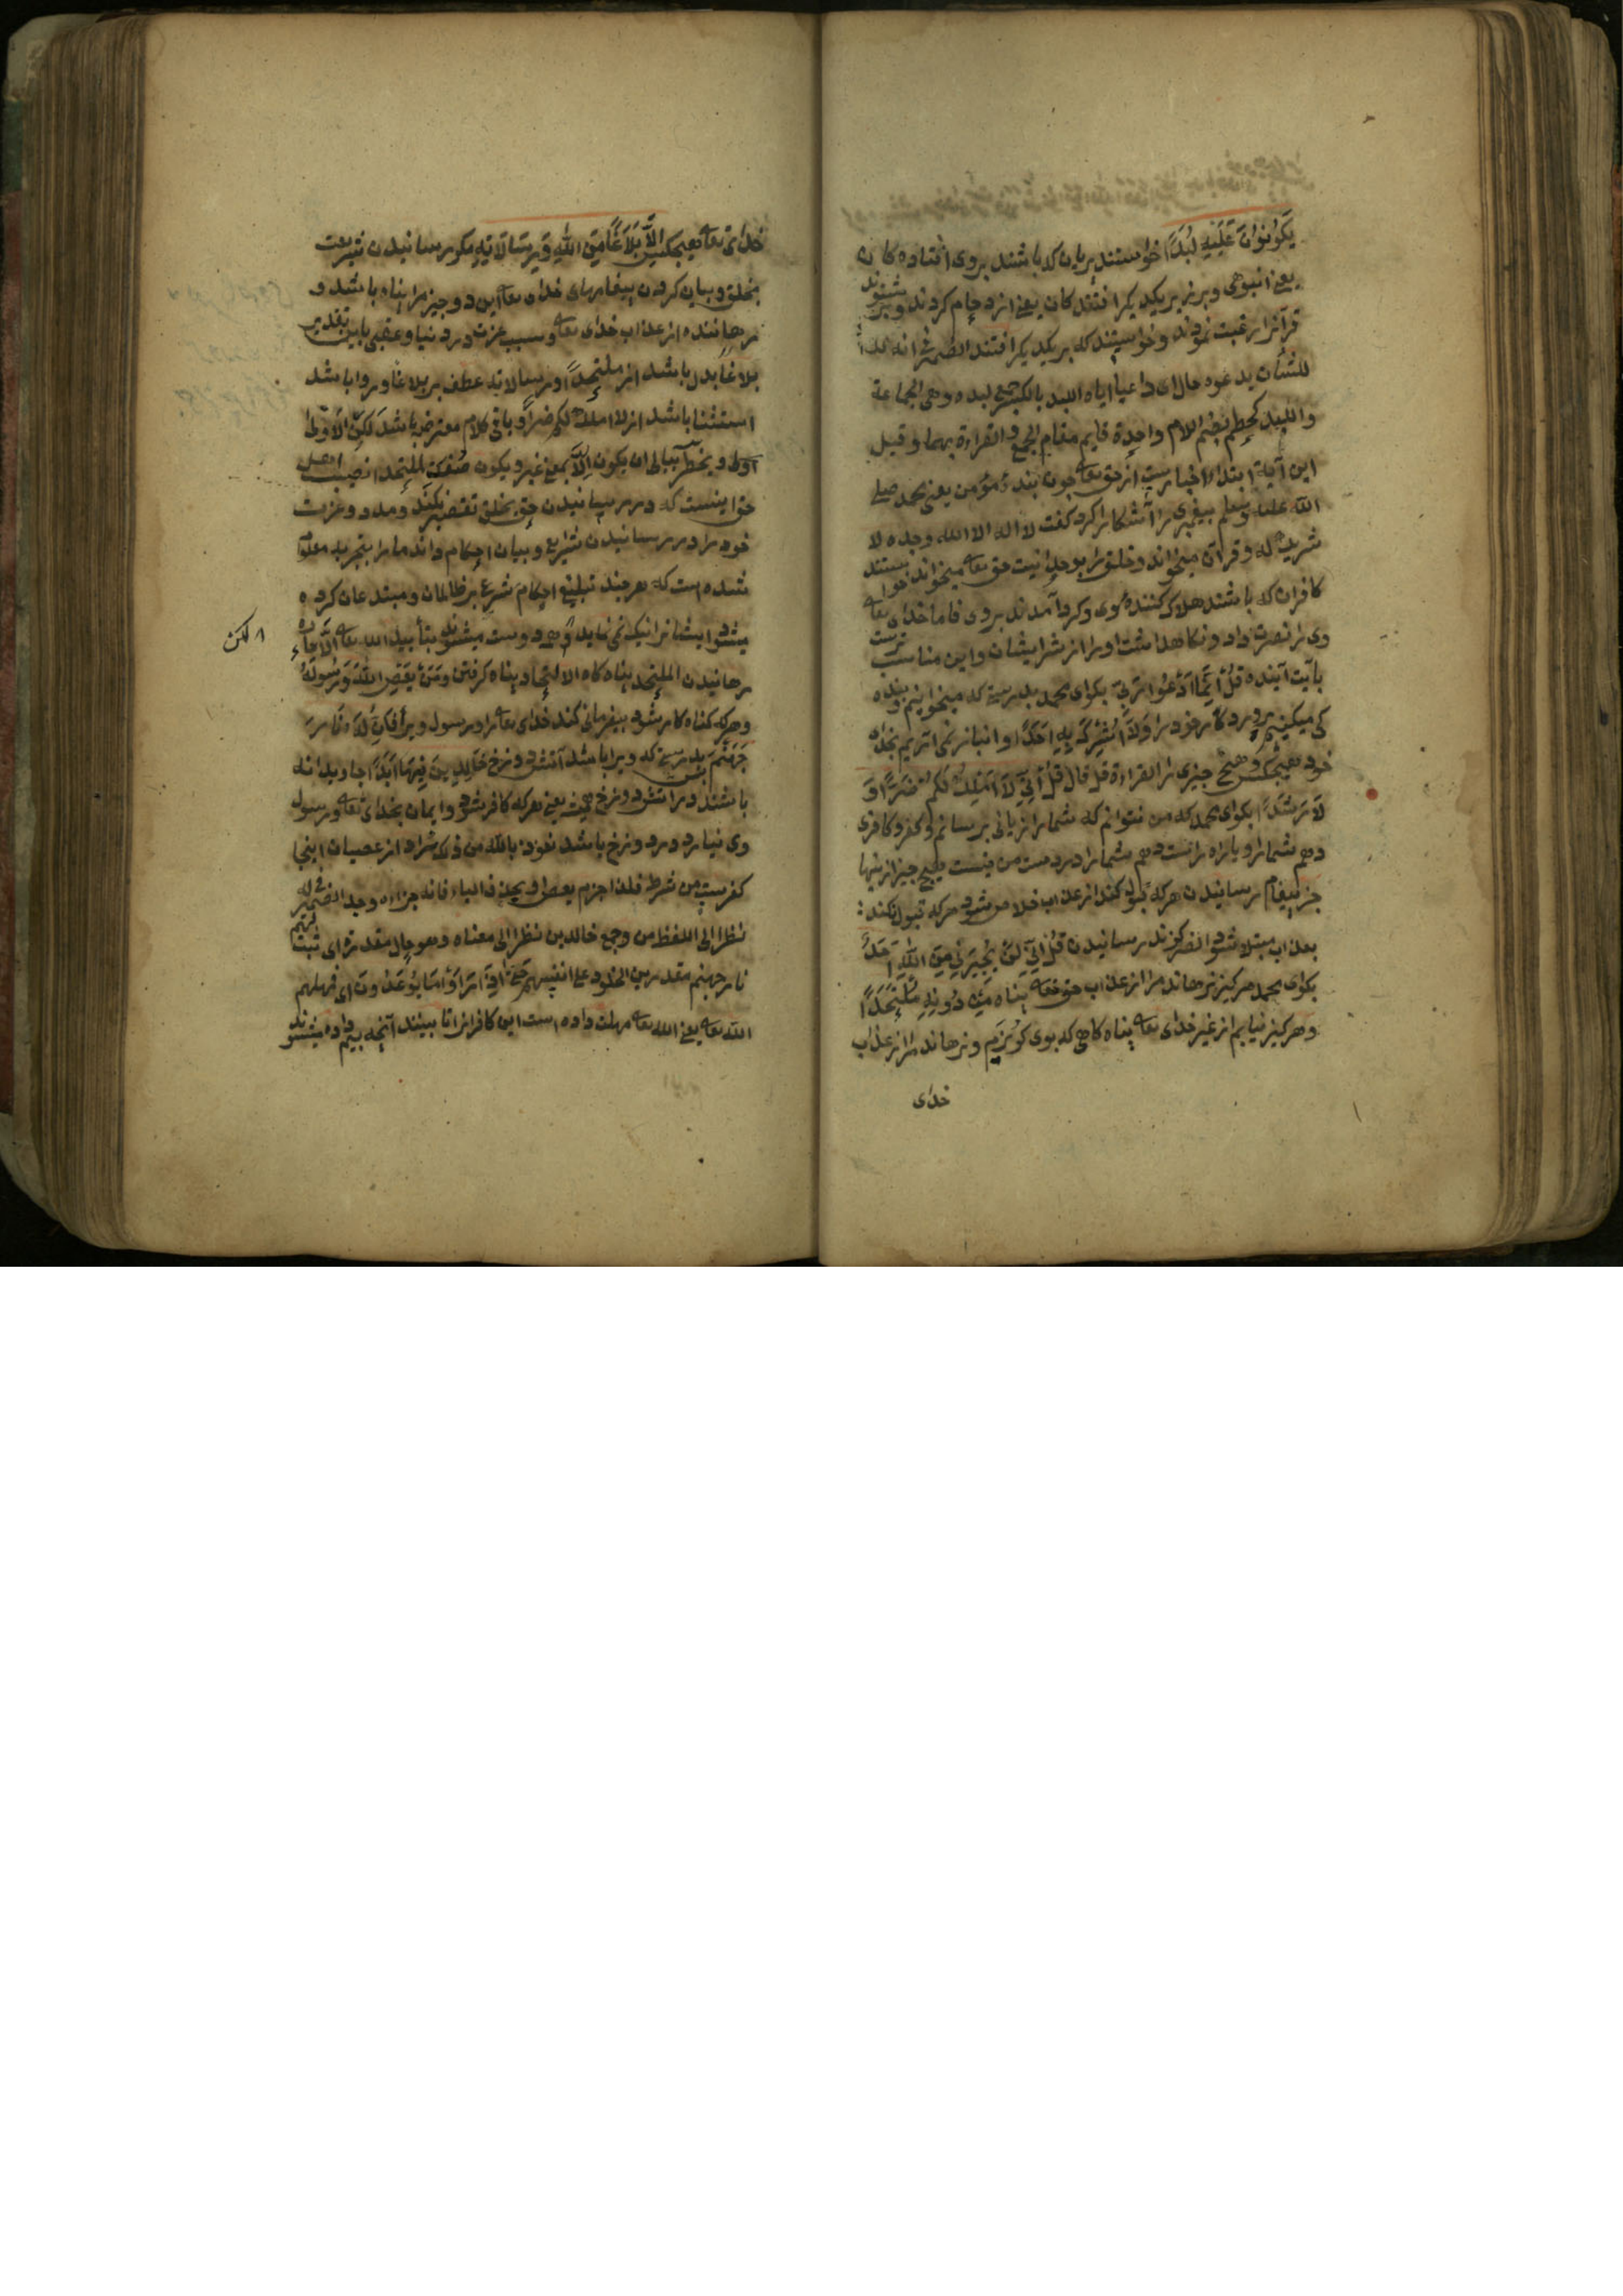 يَكُونُونَ عَلَيْهِ لِبَدًا خواستند پریان که باشند بروی افتاده کان
یعنی انبوهی و بر زبر یکدیکر افتند کان یعنی ازدحام کردند و بر
قرآنرا رغبت نمودند و خواستند که بر یکدیکر افتند الضمیر فی انه
للشأن یدعوه حال ای داعیا ایاه اللبد بالکسر جمع لبده وهی الجماعة
واللبد کحطم بضم اللام واحدة قایم مقام الجمع والقراءة بهما وقیل
این آیة ابتداء اخبارست از حق تعا جون بندهٔ مؤمن یعنی محمد صلی
الله علیه وسلم بیغمبری را آشکارا کرد کفت لا اله الا الله وحده لا
شریک له و قرآن میخواند و خلق را بوحدانیت حق تعا میخواند خواستند
کافران که باشند هلاک کنندهٔ وی و کرد آمدند بروی فاما خدای تعا
وی را نصرت داد و نکاه داشت او را از شر ایشان و این مناسب ترست
بآیت آینده قُلْ إِنَّمَا أَدْعُوا رَبِّي بکوای محمد بدرستی که میخوانیم و بنده
کی میکنیم پروردکار خود را وَلَا أُشْرِكُ بِهِ أَحَدًا و انباز نمی آریم بخدای
خود هیجکس و هیج جیزی را القراءة قل قال قُلْ إِنِّي لَا أَمْلِكُ لَكُمْ ضَرًّا وَ
لَا رَشَدًا بکوای محمد که من نتوانم که شما را زیانی برسانم و کفر و کافری
دهم شما را و یا راه راست دهم شما را در دست من نیست هیج جیز ازینها
جز بیغام رسانیدن هر که قبول کند از عذاب خلاص شود هر که قبول نکند
بعذاب مبتلا شود الضر کزند رسانیدن قُلْ إِنِّي لَنْ يُجِيرَنِي مِنَ اللَّهِ أَحَدٌ
بکوای محمد هرکیز نرهاند مرا از عذاب حق تعا پناه مِنْ دُونِهِ مُلْتَحَدًا
و هرکیز نیابم از غیر خدای تعا پناه کاهی که بوی کریزم و نرهاند مرا از عذاب
خدای
خدای تعا هیجکس إِلَّا بَلَاغًا مِنَ اللَّهِ وَرِسَالَاتِهِ مکر رسانیدن شریعت
بخلق و بیان کردن بیغامهای خدای تعا این دو جیز مرا پناه باشد و
رهاننده از عذاب خدای تعا و سبب عزت در دنیا و عقبی باین تقدیر
بلاغا بدل باشد از ملتحدا و رسالاته عطف بر بلاغا و روا باشد
استثنا باشد از لا املک لکم ضرا و باقی کلام معترضه باشد لکن الاول
اولی و یخطر ببالی ان یکون الا بمعنی غیر و یکون صفت الملتحدا نصیب اهل
حق اینست که در رسانیدن حق بخلق تقصیر نکند و مدد و عزت
خود را در رسانیدن شرایع و بیان احکام داند ما را بتجربه معلوم
شده است که هر جند تبلیغ احکام شرع بر ظالمان و مبتدعان کرده
میشد ایشانرا نیک نمی نماید و دوست میشوند بتأیید الله تعا
٨ لکن
رهانیدن الملتحد پناه کاه الالتحاد پناه کرفتن وَمَنْ يَعْصِ اللَّهَ وَرَسُولَهُ
و هر که کناه کار شود بیفرمانی کند خدای تعا را و رسول ویرا فَإِنَّ لَهُ نَارَ
جَهَنَّمَ بس بدرستی که ویرا باشد آتش دوزخ خَالِدِينَ فِيهَا أَبَدًا جاویدانه
باشند در آتش دوزخ همیشه یعنی هر که کافر شود و ایمان بخدای تعا و رسول
وی نیارد در دوزخ باشد نعوذ بالله من ذلک مراد از عصیان اینجا
کفرست من شرط فلذا جزم یعص و یحذف الیاء فانه جزاءه وحد الضمیر فی له
نظرا الی اللفظ من وجمع خالدین نظرا الی معناه وهو حال مقدرة ای ثبت لهم
نار جهنم مقدرین الخلود علی انفسهم حَتَّى إِذَا رَأَوْا مَا يُوعَدُونَ ای فیمهلهم
الله تعا یعنی الله تعا مهلت داده است این کافرانرا تا ببینند آنجه بیم داده میشوند